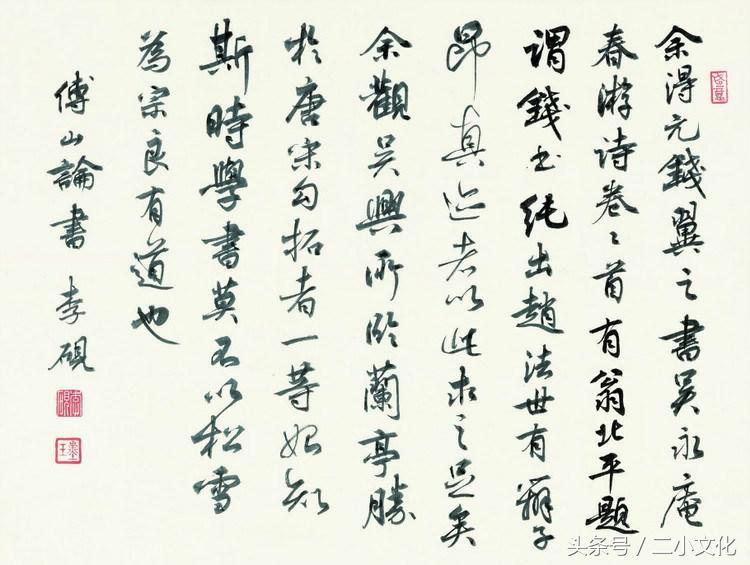 余得元錢翼之書吴永庵
春游诗卷卷首有翁北平題
谓錢书純出趙法世有辨子
昂真迹者以此求之足矣
余觀吴興所临蘭亭勝
於唐宋勾拓者一等始知
斯時學書莫不以松雪
為宗良有道也
傅山論書 李硯
头条号 / 二小文化